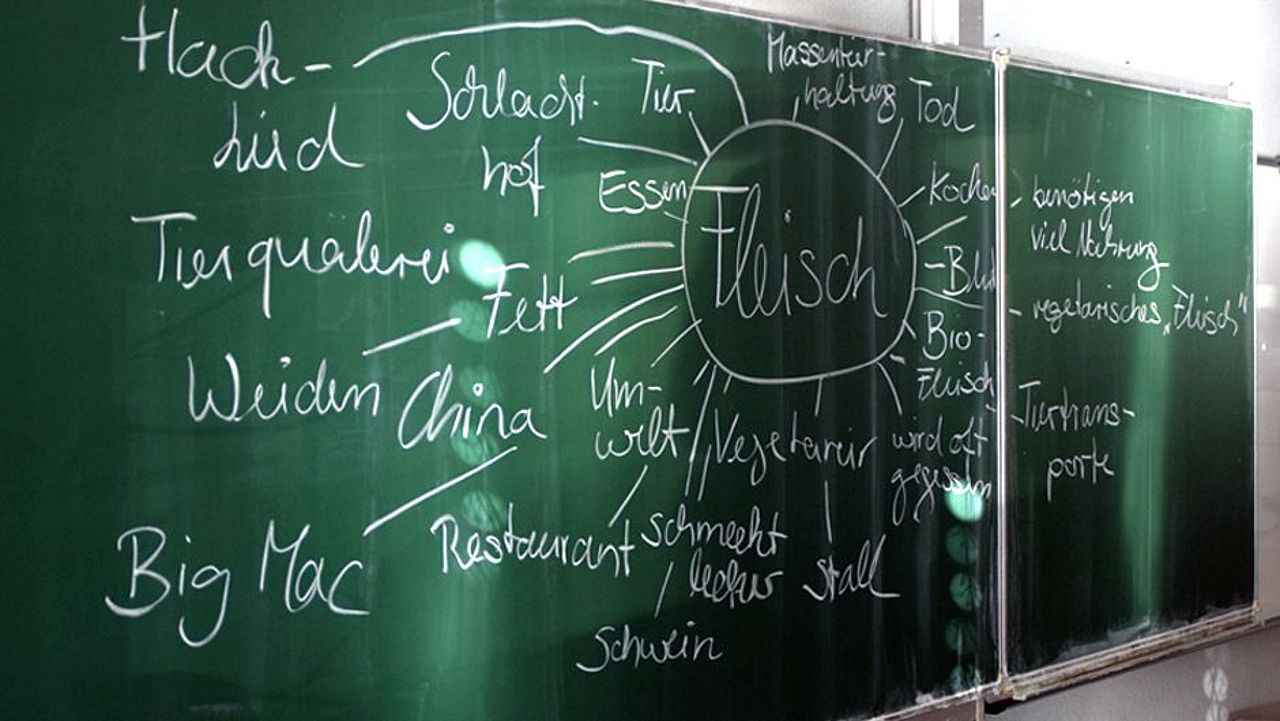 Hack-
Lied
Schlacht-
hof
Tier
Massentier-
haltung
Tod
Essen
Fleisch
Kochen
Tierquälerei
Fett
Blut
Bio-
Fleisch
Weiden
China
Um-
welt
Vegetarier
wird oft
gegessen
Big Mac
Restaurant
schmeckt
lecker
Stall
Schwein
benötigen
viel Nahrung
vegetarisches „Fleisch"
Tiertrans-
porte